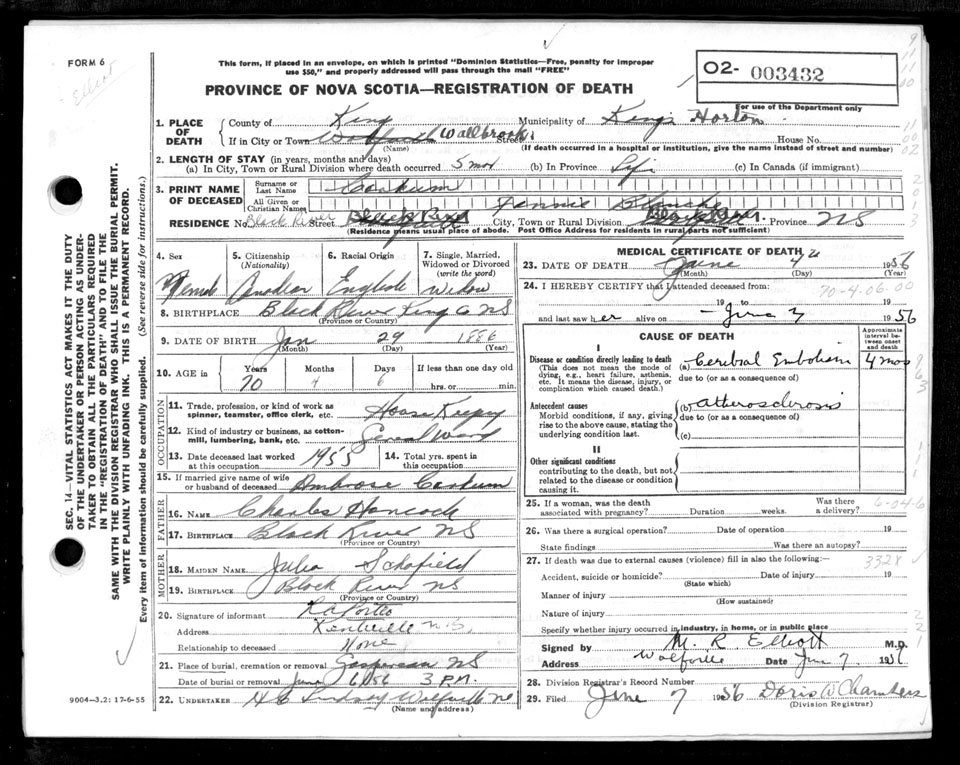 FORM 6
Elliot
This form, if placed in an envelope, on which is printed "Dominion Statistics—Free, penalty for improper
use $50," and properly addressed will pass through the mail "FREE"
PROVINCE OF NOVA SCOTIA—REGISTRATION OF DEATH
O2- 003432
For use of the Department only
SEC. 14—VITAL STATISTICS ACT MAKES IT THE DUTY
OF THE UNDERTAKER OR PERSON ACTING AS UNDER-
TAKER TO OBTAIN ALL THE PARTICULARS REQUIRED
IN THE "REGISTRATION OF DEATH" AND TO FILE THE
SAME WITH THE DIVISION REGISTRAR WHO SHALL ISSUE THE BURIAL PERMIT.
WRITE PLAINLY WITH UNFADING INK. THIS IS A PERMANENT RECORD.
Every item of information should be carefully supplied. (See reverse side for instructions.)
1. PLACE OF DEATH
County of King Municipality of Kings Horton
If in City or Town Wolfville Wallbrook Street House No.
(Name) (If death occurred in a hospital or institution, give the name instead of street and number)
2. LENGTH OF STAY (in years, months and days)
(a) In City, Town or Rural Division where death occurred 5 mos (b) In Province Life (c) In Canada (if immigrant)
3. PRINT NAME OF DECEASED
Surname or Last Name
All Given or Christian Names Jennie Blanche
RESIDENCE No. Black River Street Black River City, Town or Rural Division Black River Province NS
(Residence means usual place of abode. Post Office Address for residents in rural parts not sufficient)
4. Sex Female
5. Citizenship (Nationality) Canadian
6. Racial Origin English
7. Single, Married, Widowed or Divorced (write the word) Widow
8. BIRTHPLACE Black River King Co NS
(Province or Country)
9. DATE OF BIRTH Jan 29 1886
(Month) (Day) (Year)
10. AGE in Years Months Days If less than one day old
70 4 6 hrs. or min.
OCCUPATION
11. Trade, profession, or kind of work as spinner, teamster, office clerk, etc. House Keeper
12. Kind of industry or business, as cotton-mill, lumbering, bank, etc. General Work
13. Date deceased last worked at this occupation 1955
14. Total yrs. spent in this occupation
15. If married give name of wife or husband of deceased Ambrose
FATHER
16. NAME Charles Hancock
17. BIRTHPLACE Black River NS
(Province or Country)
MOTHER
18. MAIDEN NAME Julia Schofield
19. BIRTHPLACE Black River NS
(Province or Country)
20. Signature of informant R A Porter
Address Kentville N.S.
Relationship to deceased None
21. Place of burial, cremation or removal Gaspereau NS
Date of burial or removal June 6/56 3 P.M.
22. UNDERTAKER H C Lindsay Wolfville NS
(Name and address)
9004—3.2: 17-6-55
MEDICAL CERTIFICATE OF DEATH
23. DATE OF DEATH June 4 1956
(Month) (Day) (Year)
24. I HEREBY CERTIFY that I attended deceased from:
70-4-06.00
19 to 19
and last saw her alive on June 1956
CAUSE OF DEATH
Approximate interval between onset and death
I
Disease or condition directly leading to death
(This does not mean the mode of dying, e.g., heart failure, asthenia, etc. It means the disease, injury, or complication which caused death.)
(a) Cerebral Embolism 4 mos
due to (or as a consequence of)
Antecedent causes
Morbid conditions, if any, giving rise to the above cause, stating the underlying condition last.
(b) atherosclerosis
due to (or as a consequence of)
(c)
II
Other significant conditions
contributing to the death, but not related to the disease or condition causing it.
25. If a woman, was the death associated with pregnancy? Duration weeks. Was there a delivery?
6-04-6
26. Was there a surgical operation? Date of operation 19
State findings Was there an autopsy?
27. If death was due to external causes (violence) fill in also the following:
332X
Accident, suicide or homicide? Date of injury 19
(State which)
Manner of injury
(How sustained)
Nature of injury
Specify whether injury occurred in industry, in home, or in public place
Signed by M. R. Elliott M.D.
Address Wolfville Date June 7 1956
28. Division Registrar's Record Number
29. Filed June 7 1956 Doris W Chambers
(Division Registrar)